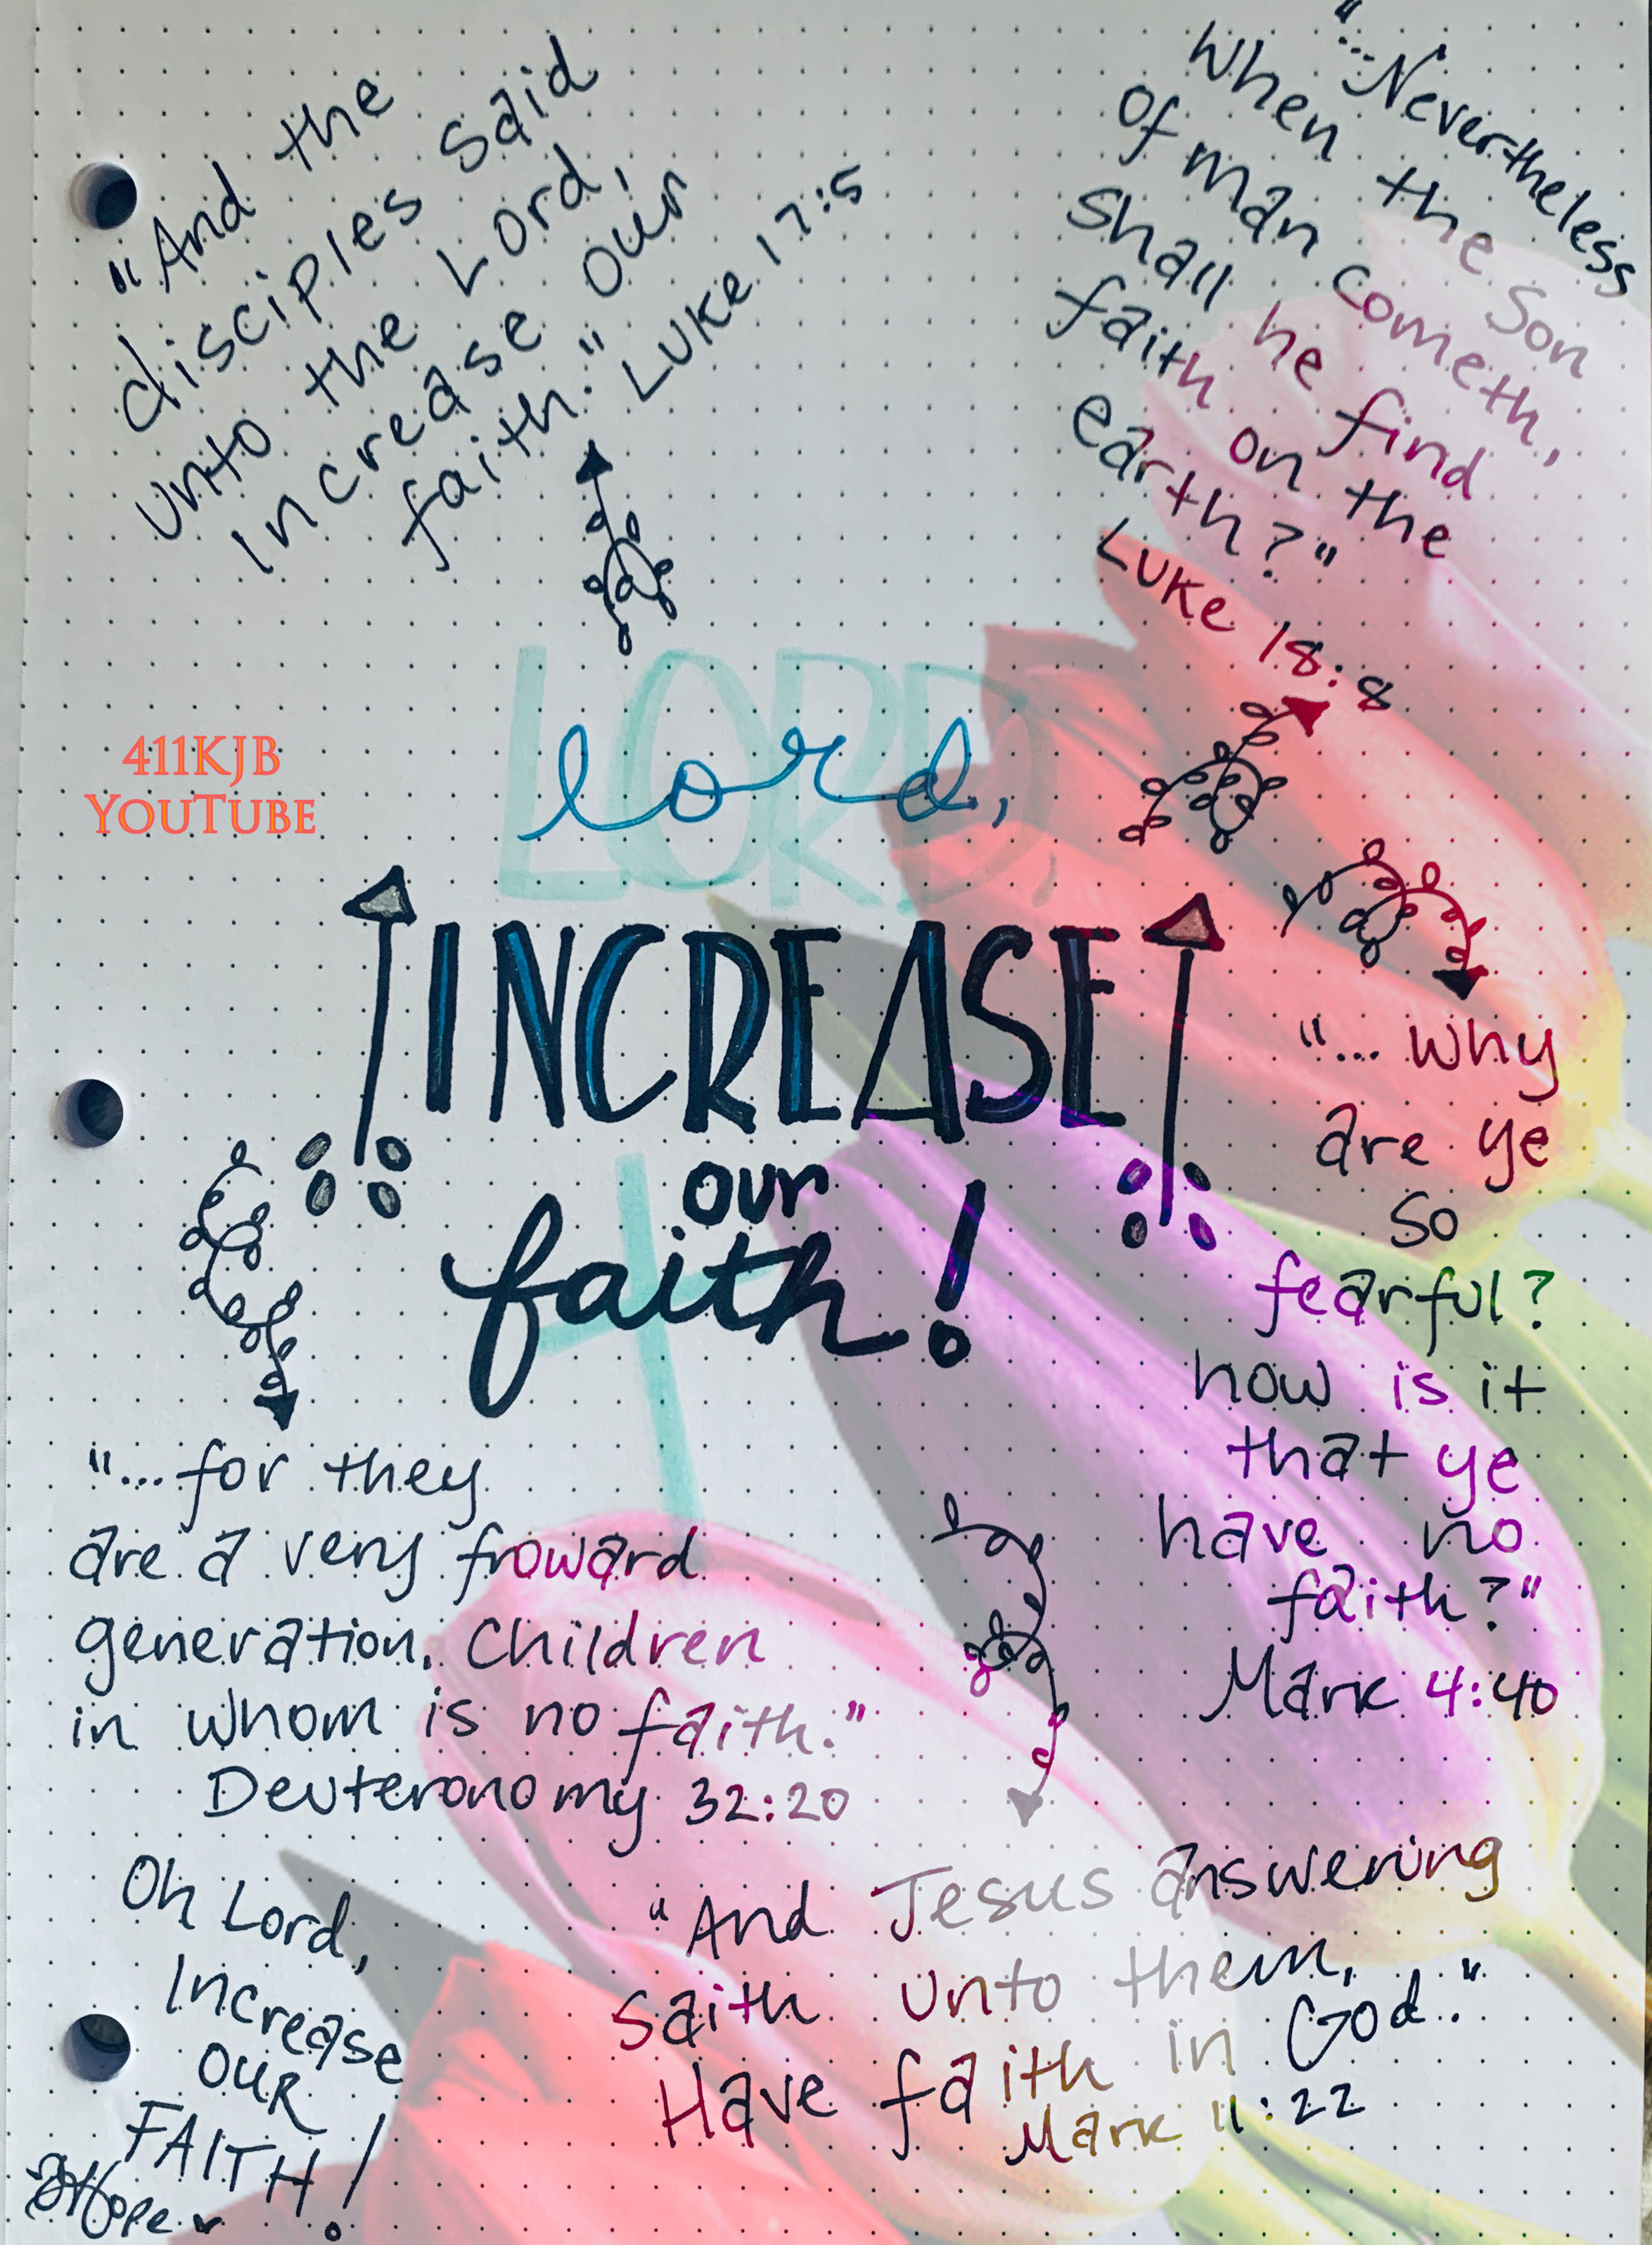 "And the
disciples said
unto the Lord,
Increase our
faith." Luke 17:5
"...Nevertheless
when the Son
of man cometh,
shall he find
faith on the
earth?"
Luke 18:8
411KJB
YouTube
LORD,
lord,
INCREASE
our
faith!
"... why
are ye
so
fearful?
how is it
that ye
have no
faith?"
Mark 4:40
"...for they
are a very froward
generation, children
in whom is no faith."
Deuteronomy 32:20
"And Jesus answering
saith unto them,
Have faith in God.."
Mark 11:22
Oh Lord,
Increase
OUR
FAITH!
Hope